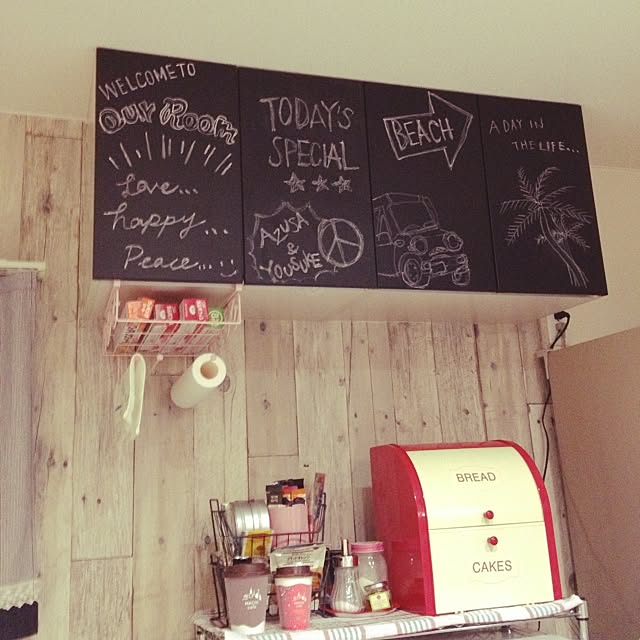 WELCOME TO
OUR ROOM
Love...
happy...
Peace...
TODAY'S
SPECIAL
AZUSA
&
YOUSUKE
BEACH
A DAY IN
THE LIFE...
BREAD
CAKES